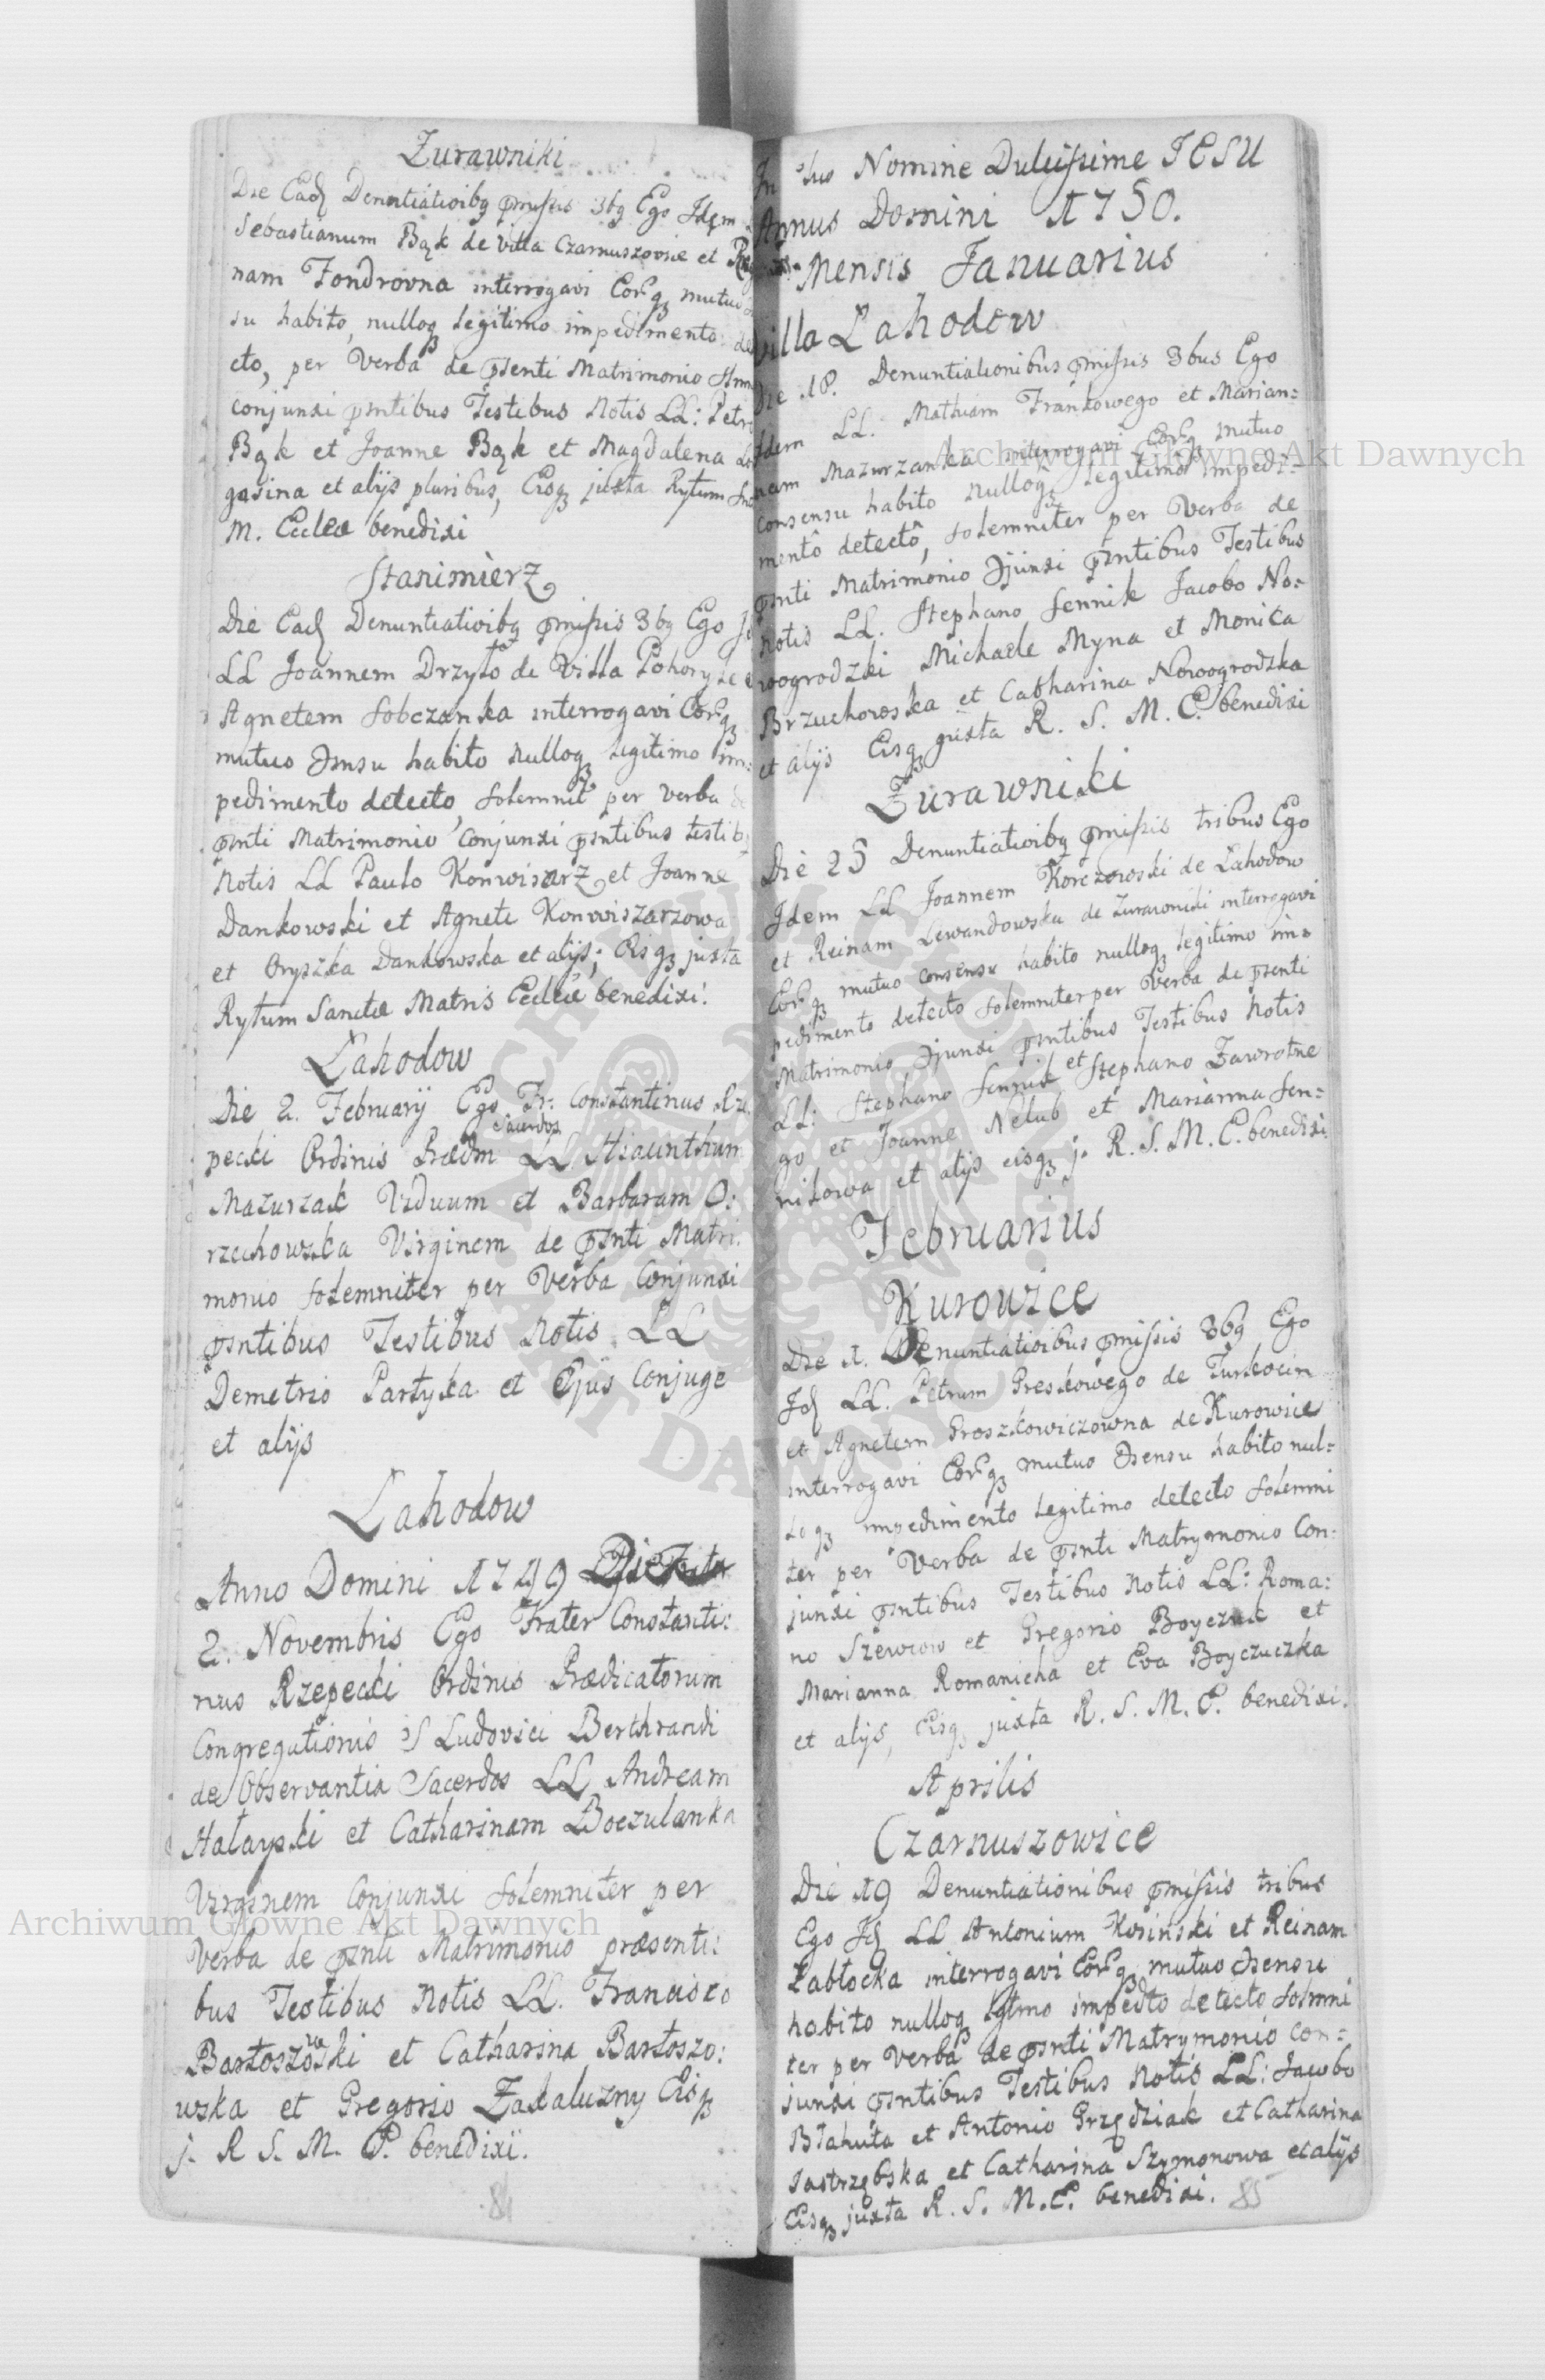 Zurawniki
Die Ead Denuntiatioibq pmissis 3bq Ego Idem
Sebastianum Bąk de Villa Czarnuszovie et Regi
nam Fondrovna interrogavi Eorq mutuo
su habito, nulloq legitimo impedimento de
cto, per Verba de psenti Matrimonio
conjunxi psntibus Testibus Notis LL: Petro
Bąk et Joanne Bąk et Magdalena
gasina et alijs pluribus, Eisq juxta Rytum
M. Eccleæ benedixi
Stanimierz
Die Ead Denuntiatioibq pmissis 3bq Ego
LL Joannem Drzyto de Villa Pohoryle
Agnetem Sobczanka interrogavi Eorq
mutuo Jnsu habito Nulloq legitimo im:
pedimento detecto, Solemnit per verba de
psnti Matrimonio conjunxi psntibus testibq
Notis LL Paulo Konwisarz et Joanne
Dankowski et Agnete Konwiszarzowa
et Oryszka Dankowska et alijs; Eisq juxta
Rytum Sanctæ Matris Eccleiæ benedixi.
Lahodow
Die 2. Februarij Ego Fr: Constantinus Rze
Sacerdos
pecki Ordinis Prædm LL Hiacinthum
Mazurzak Viduum et Barbaram O:
rzechowska Virginem de psnti Matri
monio Solemniter per Verba Conjunxi
psntibus Testibus Notis LL
Demetrio Partyka et Ejus Conjuge
et alijs
Lahodow
Anno Domini 1749
2. Novembris Ego Frater Constanti:
nus Rzepecki Ordinis Prædicatorum
Congregationis S Ludovici Berthrandi
de Observantia Sacerdos LL Andream
Hatayski et Catharinam Boczulanka
Virginem Conjunxi Solemniter per
Verba de psnti Matrimonio præsenti:
bus Testibus Notis LL. Francisco
Bartoszowski et Catharina Bartoszo:
wska et Gregorio Zakaluzny Eisq
j. R S. M. E. benedixi.
84
In Nomine Dulcissime JESU
Annus Domini 1750.
Mensis Januarius
Villa Lahodow
Die 18. Denuntiationibus pmissis 3bus Ego
Idem LL. Mathiam Frankowego et Marian:
nam Mazurzanka interrogavi Eorq mutuo
consensu habito Nulloq legitimo impedi:
mento detecto, solemniter per Verba de
psnti Matrimonio Jjunxi psntibus Testibus
Notis LL. Stephano Sennik Jacobo No:
wogrodzki Michaele Myna et Monica
Brzuchowska et Catharina Nowogrodzka
et alijs Eisq juxta R. S. M. E. benedixi
Zurawniki
Die 25 Denuntiatioibq pmissis tribus Ego
Idem LL Joannem Korczowski de Lahodow
et Reinam Lewandowska de Zurawniki interrogavi
Eorq mutuo consensu habito nulloq legitimo im:
pedimento detecto solemniter per Verba de psenti
Matrimonio Jjunxi psntibus Testibus Notis
LL: Stephano Sennik et Stephano Zawrotne
go et Joanne Nelub et Marianna Sen:
nikowa et alijs eisq j. R. S. M. E. benedixi
Februarius
Kurowice
Die 1. Denuntiatioibus pmissis 3bq Ego
Id LL. Petrum Greskowego de Turkocin
et Agnetem Groszkowiczowna de Kurowice
interrogavi Eorq mutuo Jsensu habito nul:
loq impedimento legitimo detecto Solemni
ter per Verba de psnti Matrymonio Con:
junxi psntibus Testibus Notis LL: Roma:
no Szewcow et Gregorio Boyczuk et
Marianna Romanicha et Eva Boyczuczka
et alijs, Eisq juxta R. S. M. E. benedixi.
Aprilis
Czarnuszowice
Die 19 Denuntiationibus pmissis tribus
Ego Id LL Antonium Kosinski et Reinam
Zabłocka interrogavi Eorq mutuo Jsensu
habito nulloq lgtmo impedto detecto Solmni
ter per Verba de psnti Matrymonio con:
junxi psntibus Testibus Notis LL: Jacobo
Błahuta et Antonio Grzędziak et Catharina
Jastrzębska et Catharina Szymonowa et alijs
Eisq juxta R. S. M. E. benedixi.
85
Archiwum Główne Akt Dawnych
Archiwum Główne Akt Dawnych
ARCHIWUM GŁÓWNE
AKT DAWNYCH